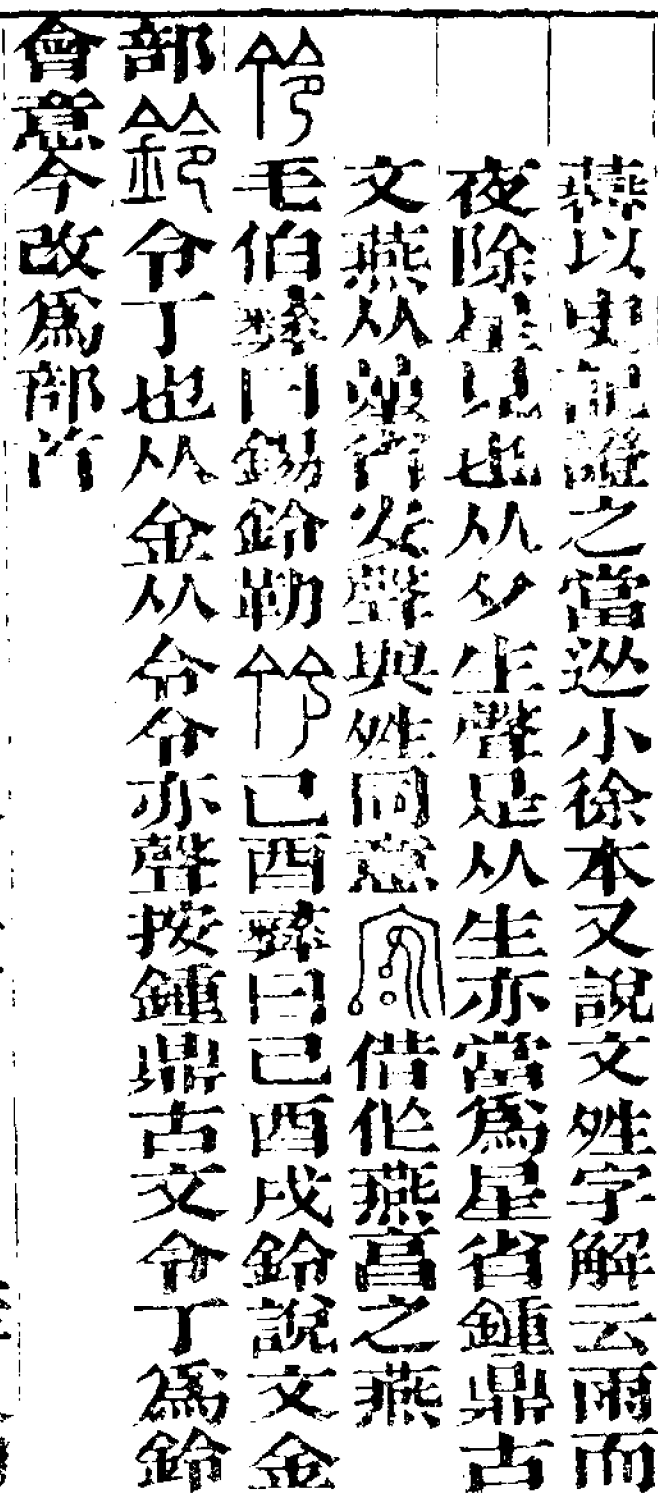 燕以史記證之當从小徐本又說文姓字解云雨而
夜除星見也从夕生聲是从生亦當爲星省鍾鼎古
文燕从燕省妟聲與姓同意借作燕亯之燕
毛伯彝曰錫鈴勒己酉彝曰己酉戍鈴說文金
部令丁也从金从令令亦聲按鍾鼎古文令丁爲鈴
會意今改爲部首